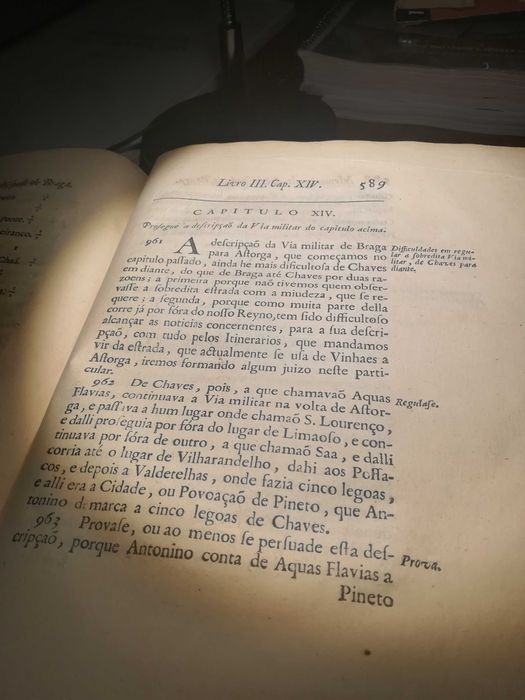 de Braga.
Livro III. Cap. XIV. 589
CAPITULO XIV.
Prosegue a descripçaõ da Via militar do capitulo acima.
961 A descripçaõ da Via militar de Braga
para Astorga, que começamos no
capitulo passado, ainda he mais dificultosa de Chaves
em diante, do que de Braga até Chaves por duas ra-
zoens; a primeira porque naõ tivemos quem obser-
vasse a sobredita estrada com a miudeza, que se re-
quere; a segunda, porque como muita parte della
corre já por fóra do nosso Reyno, tem sido difficultoso
alcançar as noticias concernentes, para a sua descri-
pçaõ, com tudo pelos Itinerarios, que mandamos
vir da estrada, que actualmente se usa de Vinhaes a
Astorga, iremos formando algum juizo neste parti-
cular.
Difficuldades em regu-
lar a sobredita Via mi-
litar, de Chaves para
diante.
962 De Chaves, pois, a que chamavaõ Aquas
Flavias, continuava a Via militar na volta de Astor-
ga, e passava a hum lugar onde chamaõ S. Lourenço,
e dalli proseguia por fóra do lugar de Limaoso, e con-
tinuava por fóra de outro, a que chamaõ Saa, e dalli
corria até o lugar de Vilharandelho, dahi aos Possa-
cos, e depois a Valdetelhas, onde fazia cinco legoas,
e alli era a Cidade, ou Povoaçaõ de Pineto, que An-
tonino demarca a cinco legoas de Chaves.
Regulase.
963 Provase, ou ao menos se persuade esta des-
cripçaõ, porque Antonino conta de Aquas Flavias a
Prova.
Pineto